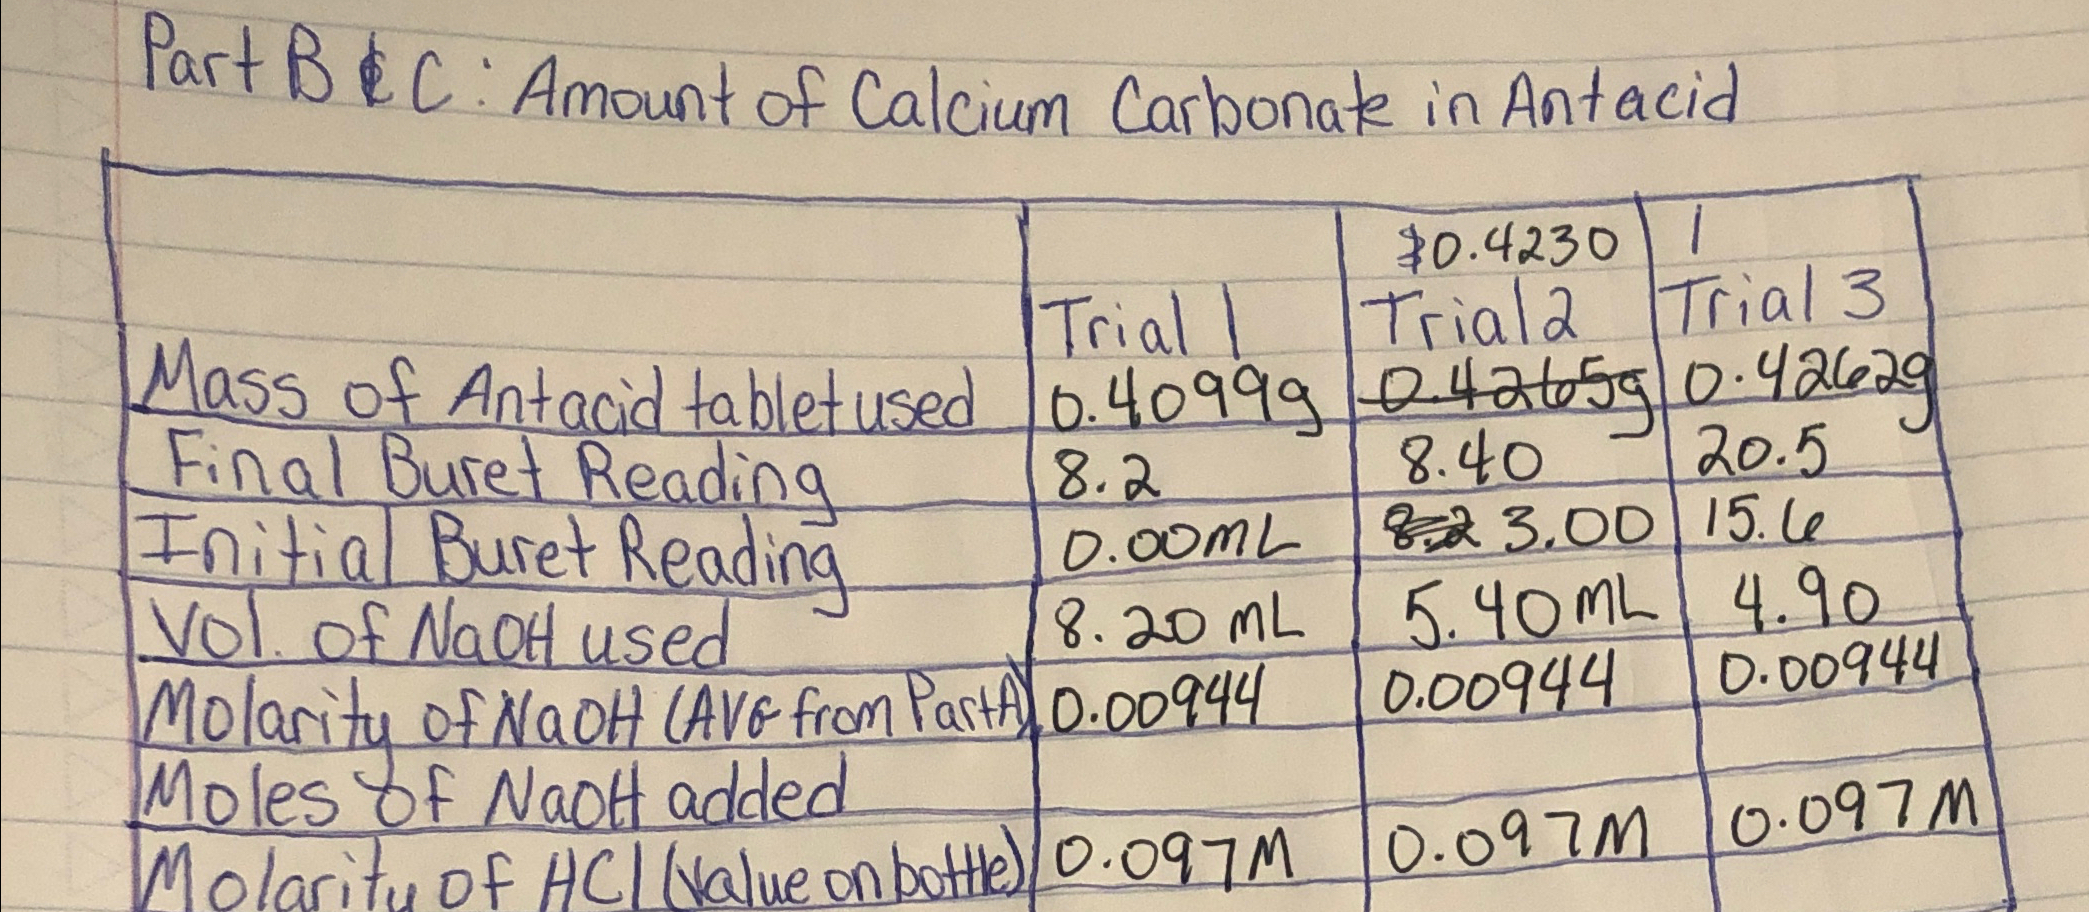 Part B & C: Amount of Calcium Carbonate in Antacid
0.4230
Trial 1 Trial 2 Trial 3
Mass of Antacid tablet used 0.4099g 0.4265g 0.4262g
Final Buret Reading 8.2 8.40 20.5
Initial Buret Reading 0.00mL 8.2 3.00 15.6
Vol. of NaOH used 8.20 mL 5.40 mL 4.90
Molarity of NaOH (AVG from Part A) 0.00944 0.00944 0.00944
Moles of NaOH added
Molarity of HCl (value on bottle) 0.097M 0.097M 0.097M